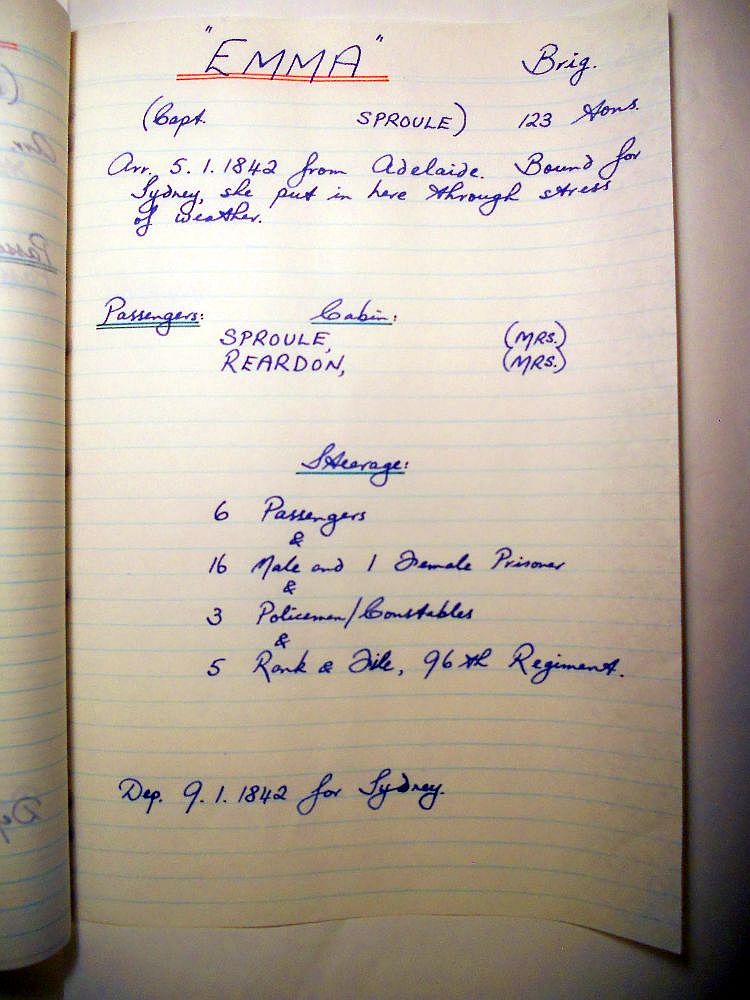 "EMMA" Brig.
(Capt. SPROULE) 123 tons.
Arr. 5.1.1842 from Adelaide. Bound for
Sydney, she put in here through stress
of weather.
Passengers: Cabin:
SPROULE, (MRS.)
REARDON, (MRS.)
Steerage:
6 Passengers
&
16 Male and 1 Female Prisoner
&
3 Policemen/Constables
&
5 Rank & File, 96th Regiment.
Dep. 9.1.1842 for Sydney.